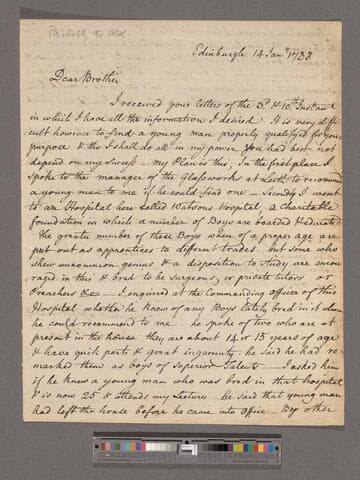 Probably to Ald.
Edinburgh 14 Jany 1788
Dear Brother
I received your letters of the 3d & 10th Instant
in which I have all the information I desired It is very diffi
cult however to find a young man properly qualifyed for your
purpose & tho I shall do all in my power You had best not
depend on my Success — my Plan is this, In the first place I
spoke to the manager of the Glasswork at Leith to recommend
a young man to me if he could find one — Secondly I went
to an Hospital here called Watsons Hospital, a Charitable
foundation in which a number of Boys are boarded & educated
the greater number of these Boys when of a proper age are
put out as apprentices to different trades but some who
shew uncommon genius & a disposition to study are encou
raged in this & bred to be Surgeons, or private tutors or
Preachers &c — I enquired at the Commanding officer of this
Hospital whether he knew of any Boys lately bred in it whom
he could recommend to me he spoke of two who are at
present in the house they are about 14 or 15 years of age
& have quick parts & great ingenuity he said he had re-
marked them as boys of Superior Talents — I asked him
if he knew a young man who was bred in that hospital
& is now 25 & attends my Lectures — he said that young man
had left the house before he came into Office — By other